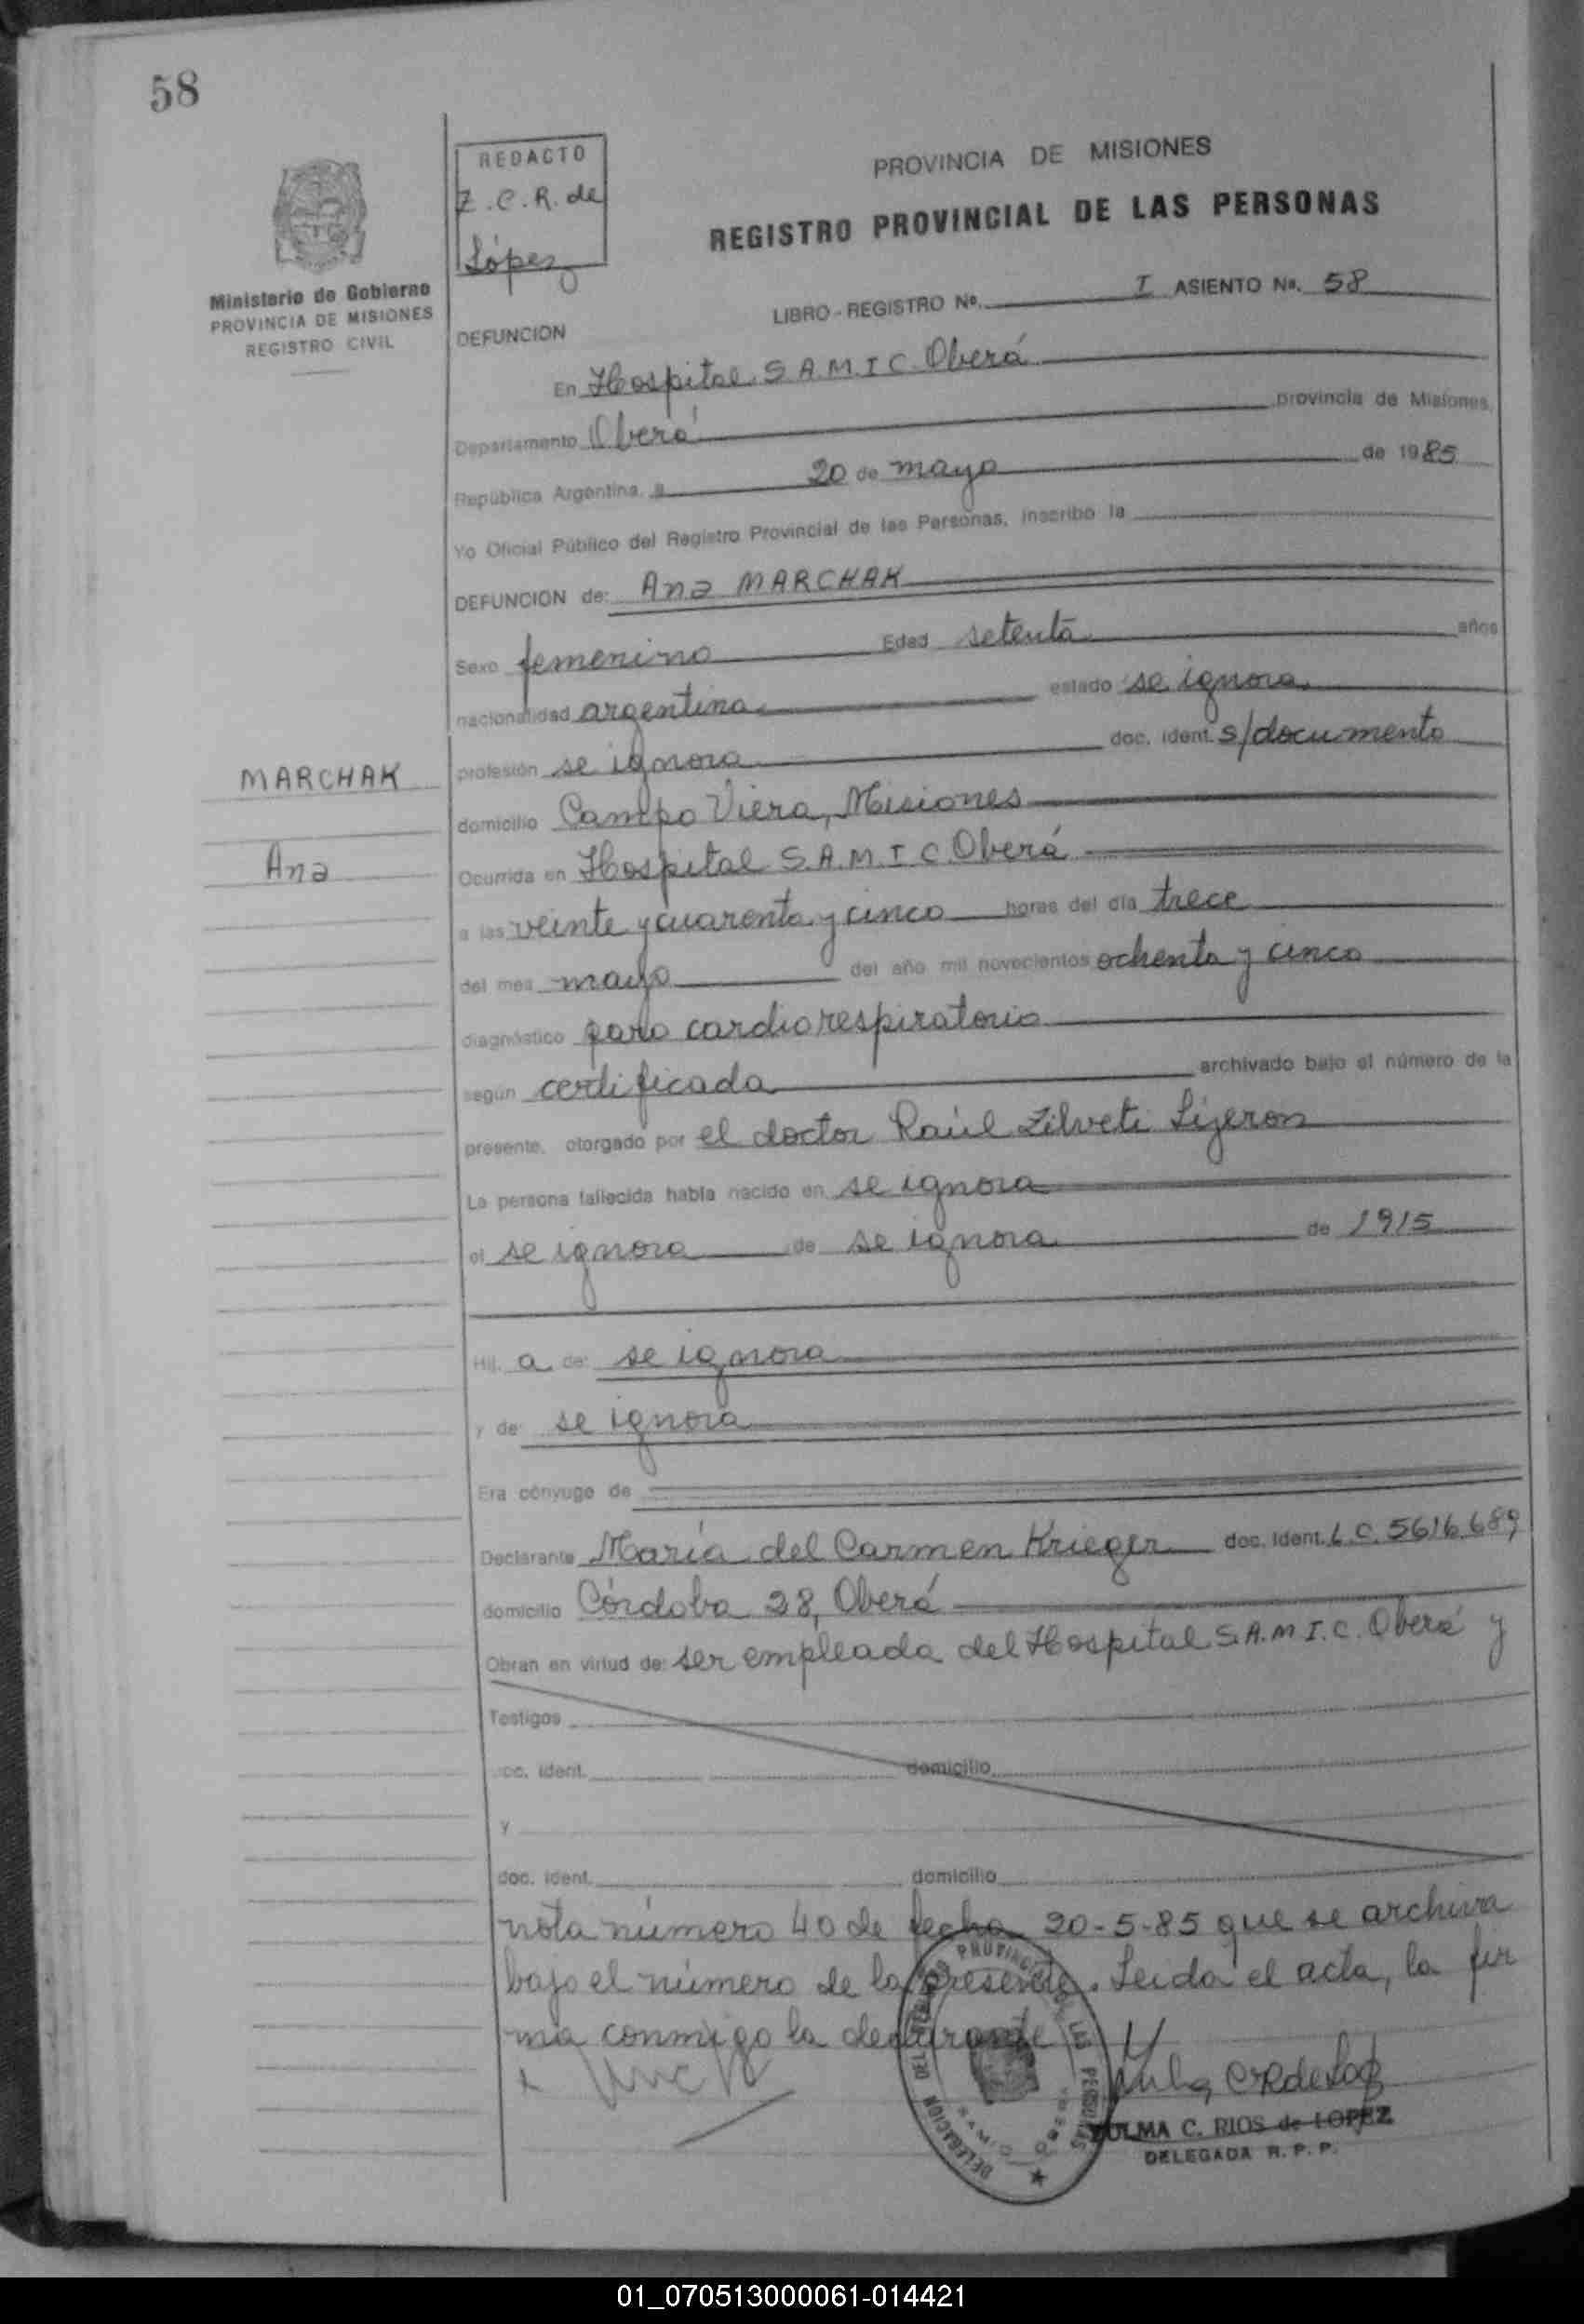 58
REDACTO
Z.C.R. de
López
PROVINCIA DE MISIONES
REGISTRO PROVINCIAL DE LAS PERSONAS
Ministerio de Gobierno
PROVINCIA DE MISIONES
REGISTRO CIVIL
LIBRO - REGISTRO Nº. I ASIENTO Nº. 58
DEFUNCION
En Hospital S.A.M.I.C. Oberá
Departamento Oberá provincia de Misiones,
República Argentina, a 20 de mayo de 1985
Yo Oficial Público del Registro Provincial de las Personas, inscribo la
DEFUNCION de: Ana MARCHAK
Sexo femenino Edad setenta años
nacionalidad argentina estado se ignora
profesión se ignora doc. ident. s/documento
MARCHAK
domicilio Campo Viera, Misiones
Ana
Ocurrida en Hospital S.A.M.I.C. Oberá
a las veinte y cuarenta y cinco horas del día trece
del mes mayo del año mil novecientos ochenta y cinco
diagnóstico paro cardiorespiratorio
según certificado archivado bajo el número de la
presente, otorgado por el doctor Raúl Zilveti Lijeron
La persona fallecida había nacido en se ignora
el se ignora de se ignora de 1915
Hij. a de: se ignora
y de: se ignora
Era cónyuge de
Declarante María del Carmen Krieger doc. ident. L.C. 5616.689
domicilio Córdoba 28, Oberá
Obran en virtud de: ser empleada del Hospital S.A.M.I.C. Oberá y
Testigos
doc. ident. domicilio
y
doc. ident. domicilio
nota número 40 de fecha 20-5-85 que se archiva
bajo el número de la presente. Leida el acta, la fir
ma conmigo la declarante
ZULMA C. RIOS de LOPEZ
DELEGADA R. P. P.
01_070513000061-014421